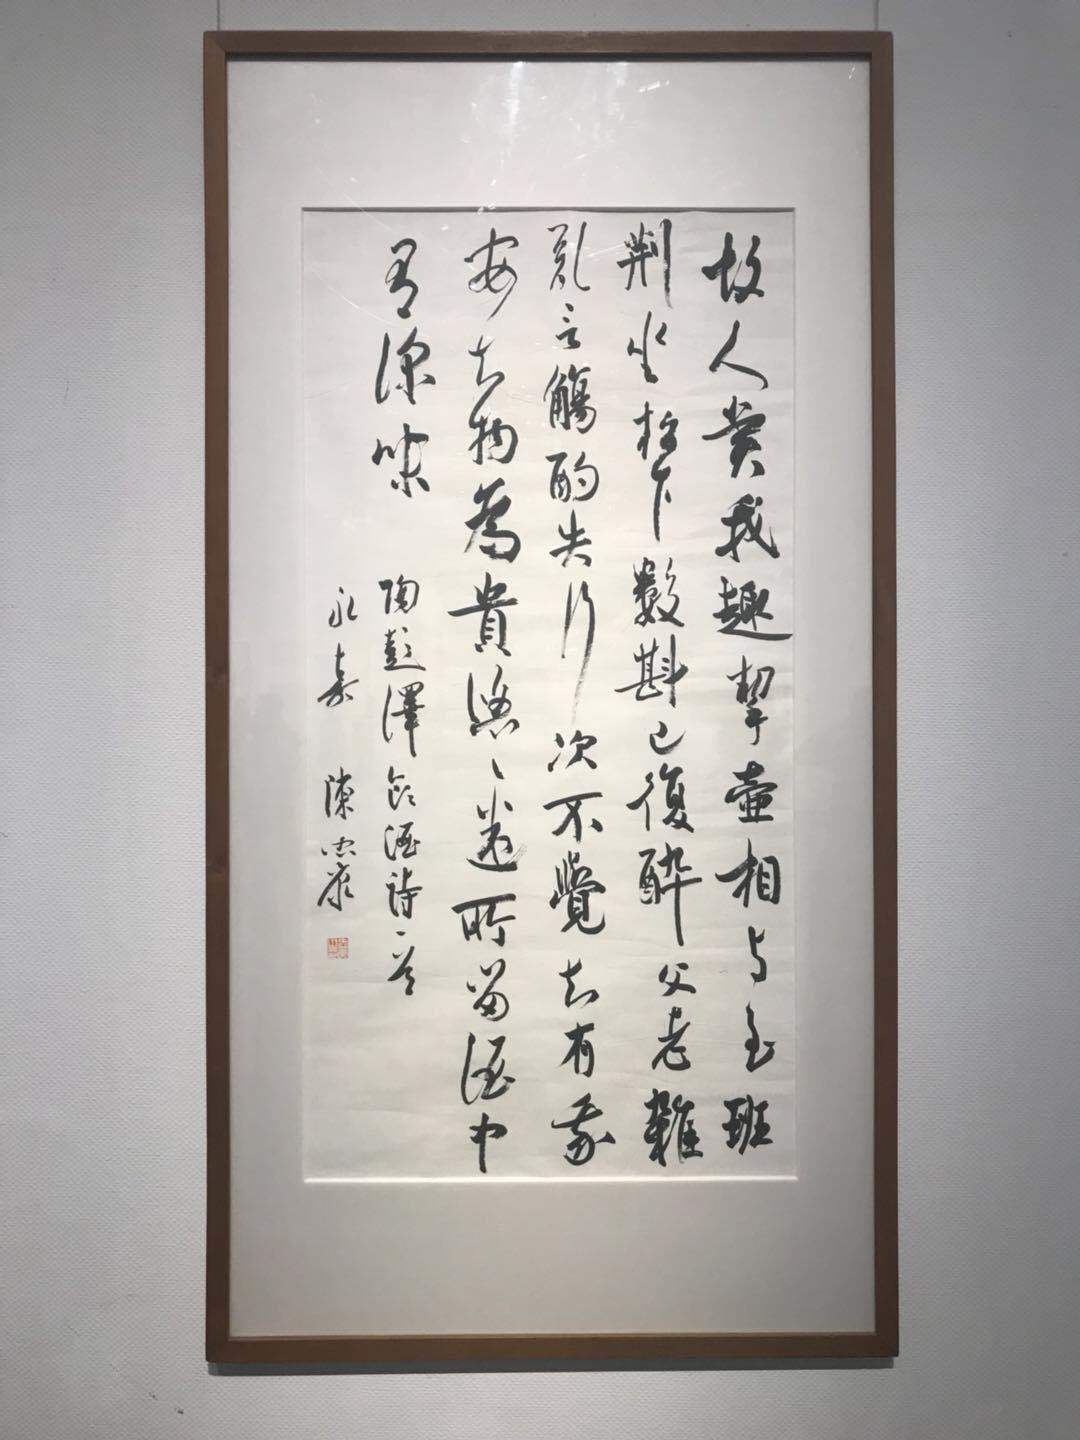 故人賞我趣挈壺相与至班
荆坐松下數斟已復醉父老雜
亂言觴酌失行次不覺知有我
安知物為貴悠〻迷所留酒中
有深味 陶彭澤飲酒詩一首
永嘉 陳忠康